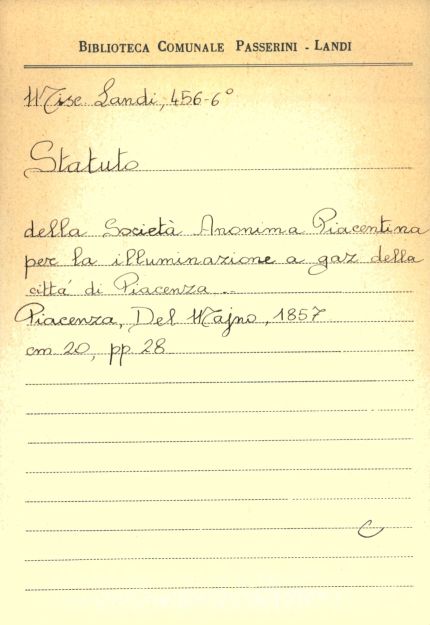 BIBLIOTECA COMUNALE PASSERINI - LANDI
Misc. Landi, 456-6°
Statuto
della Società Anonima Piacentina
per la illuminazione a gaz della
città di Piacenza ...
Piacenza, Del Majno, 1857
cm 20, pp 28
C